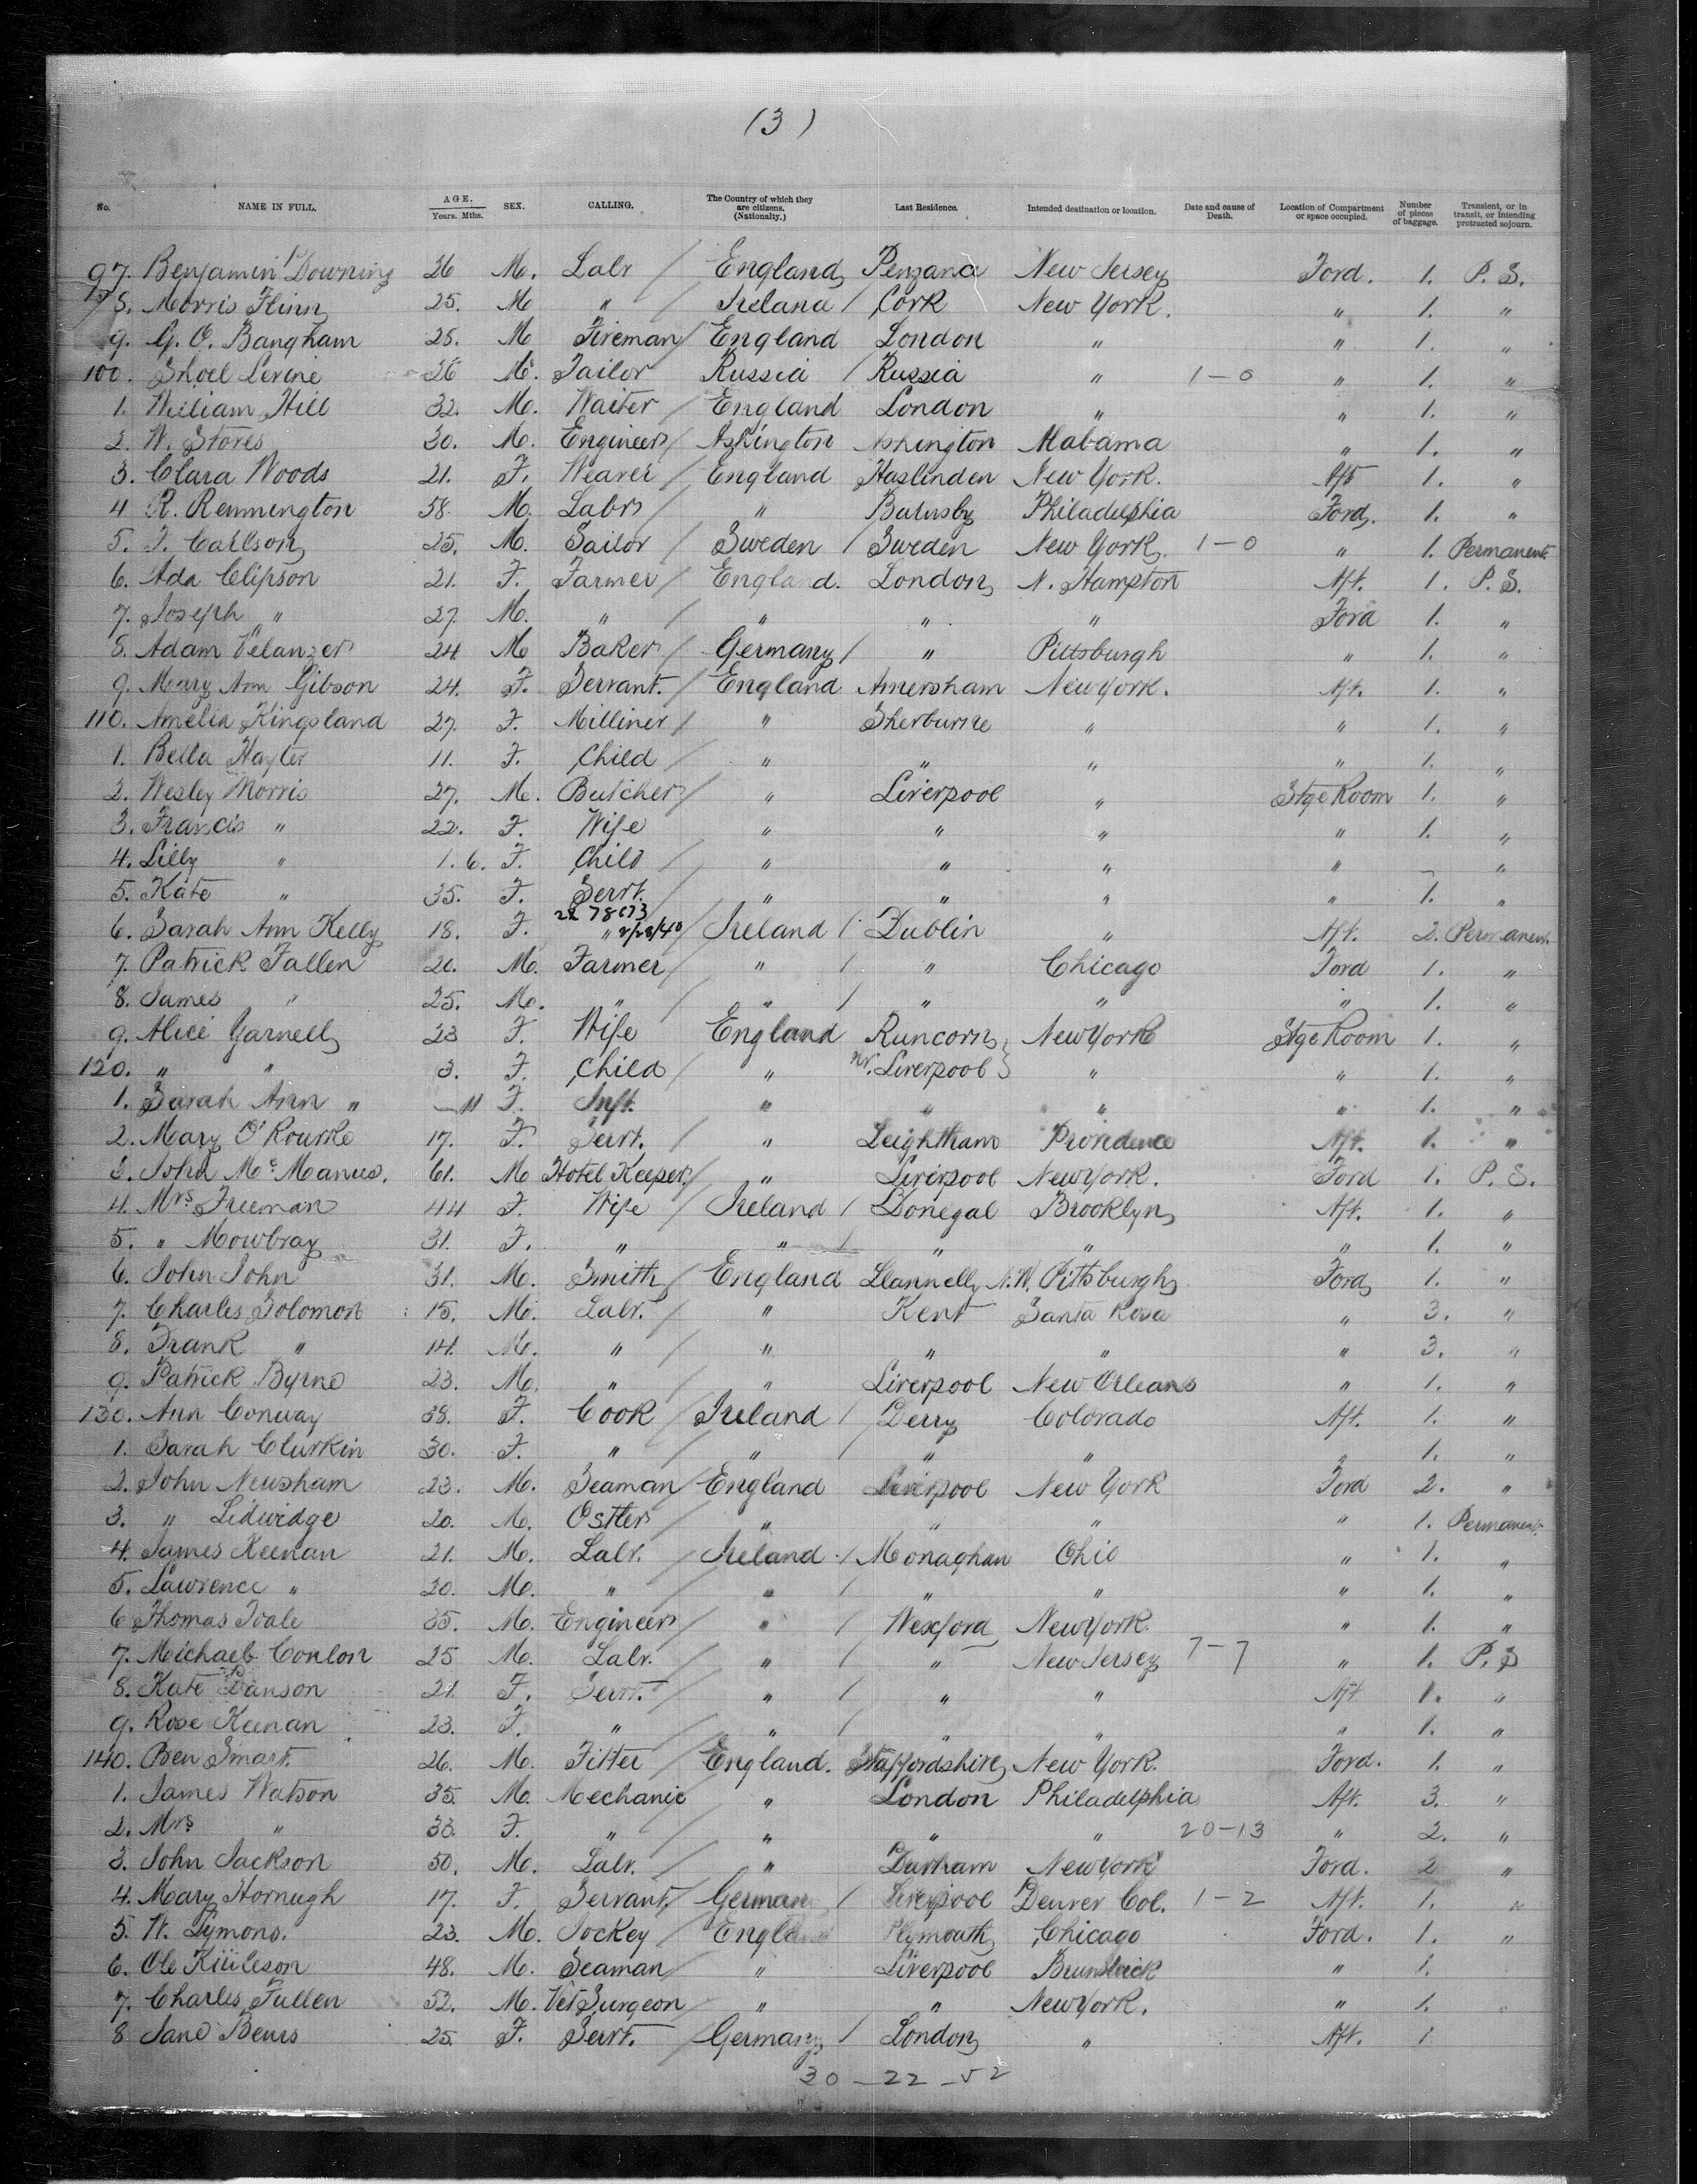 (3)
No. NAME IN FULL. AGE. Years. Mths. SEX. CALLING. The Country of which they are citizens. (Nationality.) Last Residence. Intended destination or location. Date and cause of Death. Location of Compartment or space occupied. Number of pieces of baggage. Transient, or in transit, or intending protracted sojourn.
97. Benjamin Downing 36 M. Labr / England Penzance New Jersey Ford. 1. P. S.
8. Morris Flinn 25. M " / Ireland / Cork New York. " 1. "
9. G. O. Bangham 28. M Fireman / England London " " 1. "
100. Shoel Levine 26 M. Tailor Russia / Russia " 1-0 " 1. "
1. William Hill 32. M. Waiter / England London " " 1. "
2. W. Stores 30. M. Engineer / Ashington Ashington Alabama " 1. "
3. Clara Woods 21. F. Weaver / England Haslinden New York. Aft 1. "
4 R. Remmington 38. M. Labr / " Philadelphia Ford. 1. "
5. F. Carlson 25. M. Sailor / Sweden / Sweden New York. 1-0 " 1. Permanent
6. Ada Clipson 21. F. Farmer / England. London N. Hampton Aft. 1. P. S.
7. Joseph " 27. M. " / " " " Ford 1. "
8. Adam Velanzer 24 M Baker / Germany / " Pittsburgh " 1. "
9. Mary Ann Gibson 24. F. Servant. / England Amersham New York. Aft. 1. "
110. Amelia Kingsland 27. F. Milliner / " Sherburne " " 1. "
1. Bella Hayter 11. F. Child / " " " " 1. "
2. Wesley Morris 27. M. Butcher / " Liverpool " Stge Room 1. "
3. Francis " 22. F. Wife " " " " 1. "
4. Lilly " 1. 6. F. Child / " " " " - "
5. Kate " 35. F. Servt. / " " " " 1. "
22 78673
6. Sarah Ann Kelly 18. F. " 2/23/40 / Ireland / Dublin " Aft. 2. Permanent
7. Patrick Fallen 20. M. Farmer / " / " Chicago Ford 1. "
8. James " 25. M. " / " / " " " 1. "
9. Alice Garnell 23 F. Wife England Runcorn, New York Stge Room 1. "
120. " " 3. F. Child / " nr. Liverpool } " " 1. "
1. Sarah Ann " - 11 F. Inft. " " " " 1. "
2. Mary O'Rourke 17. F. Servt. / " Leightham Providence Aft. 1. "
3. John McManus. 61. M Hotel Keeper / " Liverpool New York. Ford 1. P. S.
4. Mrs Freeman 44 F. Wife / Ireland / Donegal Brooklyn Aft. 1. "
5. " Mowbray 31. F. " " / " " " 1. "
6. John John 31. M. Smith / England Llannelly N.W. Pittsburgh Ford 1. "
7. Charles Solomon 15. M. Labr. / " Kent Santa Rosa " 3. "
8. Frank " 14. M. " / " " " " 3. "
9. Patrick Byrne 23. M. " / " Liverpool New Orleans " 1. "
130. Ann Conway 38. F. Cook / Ireland / Derry Colorado Aft. 1. "
1. Sarah Clurkin 30. F. " / " / " " " 1. "
2. John Newsham 23. M. Seaman / England Liverpool New York Ford 2. "
3. " Lidwidge 20. M. Ostler / " " " " 1. Permanent
4. James Keenan 21. M. Labr. / Ireland / Monaghan Ohio " 1. "
5. Lawrence " 20. M. " / " / " " " 1. "
6 Thomas 35. M. Engineer / " / Wexford New York. " 1. "
7. Michael Conlon 25 M. Labr. / " / " New Jersey 7-7 " 1. P. S
8. Kate Danson 21. F. Servt. / " / " " Aft. 1. "
9. Rose Keenan 23. F. " / " / " " " 1. "
140. Ben Smart. 26. M. Fitter / England. Staffordshire New York. Ford. 1. "
1. James Watson 35. M. Mechanic " London Philadelphia Aft. 3. "
2. Mrs " 33. F. " / " " " 20-13 " 2. "
3. John Jackson 50. M. Labr. / " Durham New York Ford. 2 "
4. Mary Hornugh 17. F. Servant. / German / Liverpool Denver Col. 1-2 Aft. 1. "
5. W. Symons. 23. M. Jockey / England Plymouth Chicago Ford. 1. "
6. Ole 48. M. Seaman / " Liverpool Brunswick " 1.
7. Charles Fullen 52. M. Vet Surgeon " " New York. " 1.
8 Jane Beurs 25. F. Servt. / Germany / London " Aft. 1
30 - 22 - 52